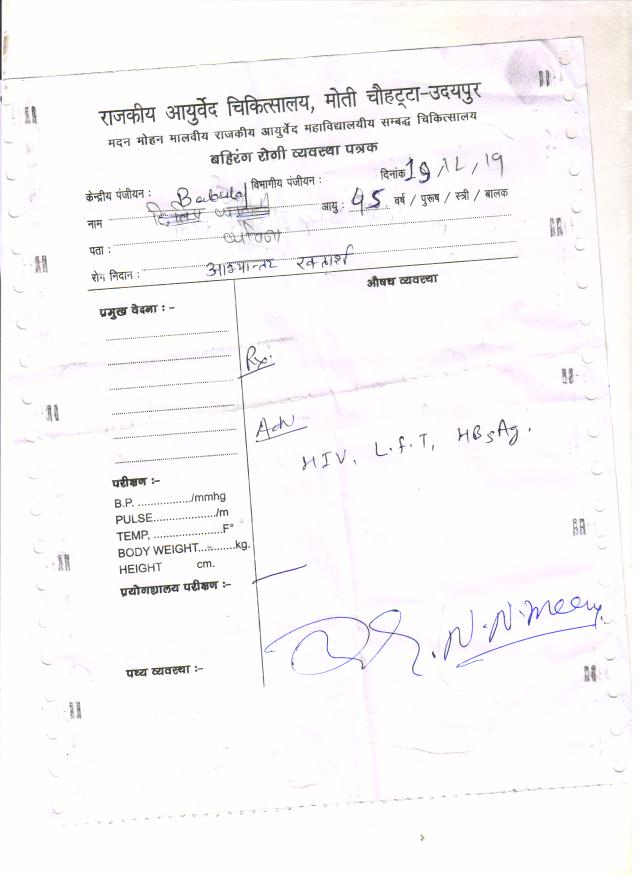 राजकीय आयुर्वेद चिकित्सालय, मोती चौहट्टा-उदयपुर
मदन मोहन मालवीय राजकीय आयुर्वेद महाविद्यालयीय सम्बद्ध चिकित्सालय
बहिरंग रोगी व्यवस्था पत्रक
केन्द्रीय पंजीयन : विभागीय पंजीयन : दिनांक 19/12/19
नाम Babulal आयु : 45 वर्ष / पुरूष / स्त्री / बालक
पता :
रोग निदान : आभ्यान्तर रक्तार्श
प्रमुख वेदना : - औषध व्यवस्था
Rx.
Adv
HIV, L.F.T, HBsAg.
परीक्षण :-
B.P. ................../mmhg
PULSE..................../m
TEMP, ......................F°
BODY WEIGHT...........kg.
HEIGHT cm.
प्रयोगशालय परीक्षण :-
N.N.Meena
पथ्य व्यवस्था :-